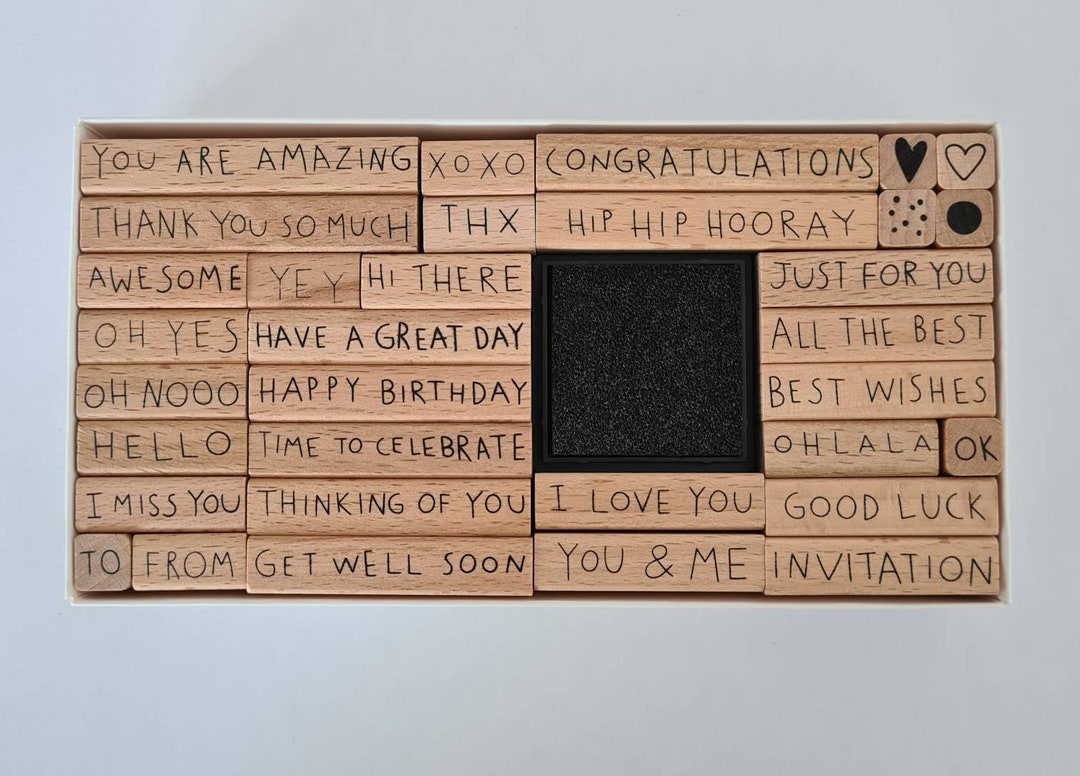 YOU ARE AMAZING
XOXO
CONGRATULATIONS
THANK YOU SO MUCH
THX
HIP HIP HOORAY
AWESOME
YEY
HI THERE
JUST FOR YOU
OH YES
HAVE A GREAT DAY
ALL THE BEST
OH NOOO
HAPPY BIRTHDAY
BEST WISHES
HELLO
TIME TO CELEBRATE
OHLALA
OK
I MISS YOU
THINKING OF YOU
I LOVE YOU
GOOD LUCK
TO
FROM
GET WELL SOON
YOU & ME
INVITATION